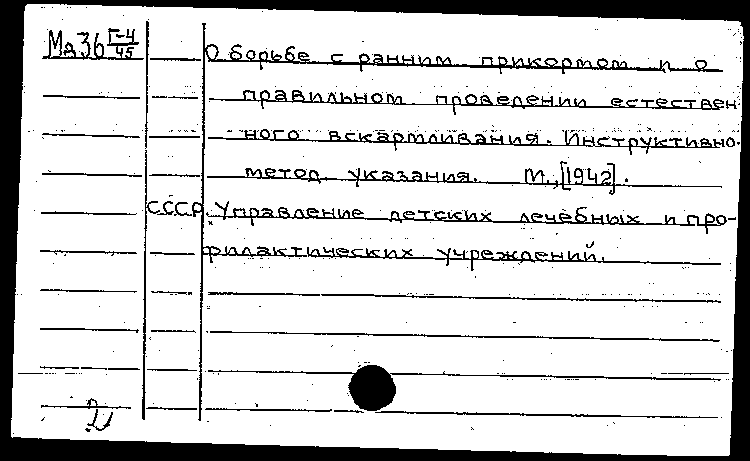 Мд 36 Г-4/45
О борьбе с ранним прикормом и о
правильном проведении естествен
ного вскармливания. Инструктивно-
метод. указания. М., [1942].
СССР. Управление детских лечебных и про-
филактических учреждений.
2